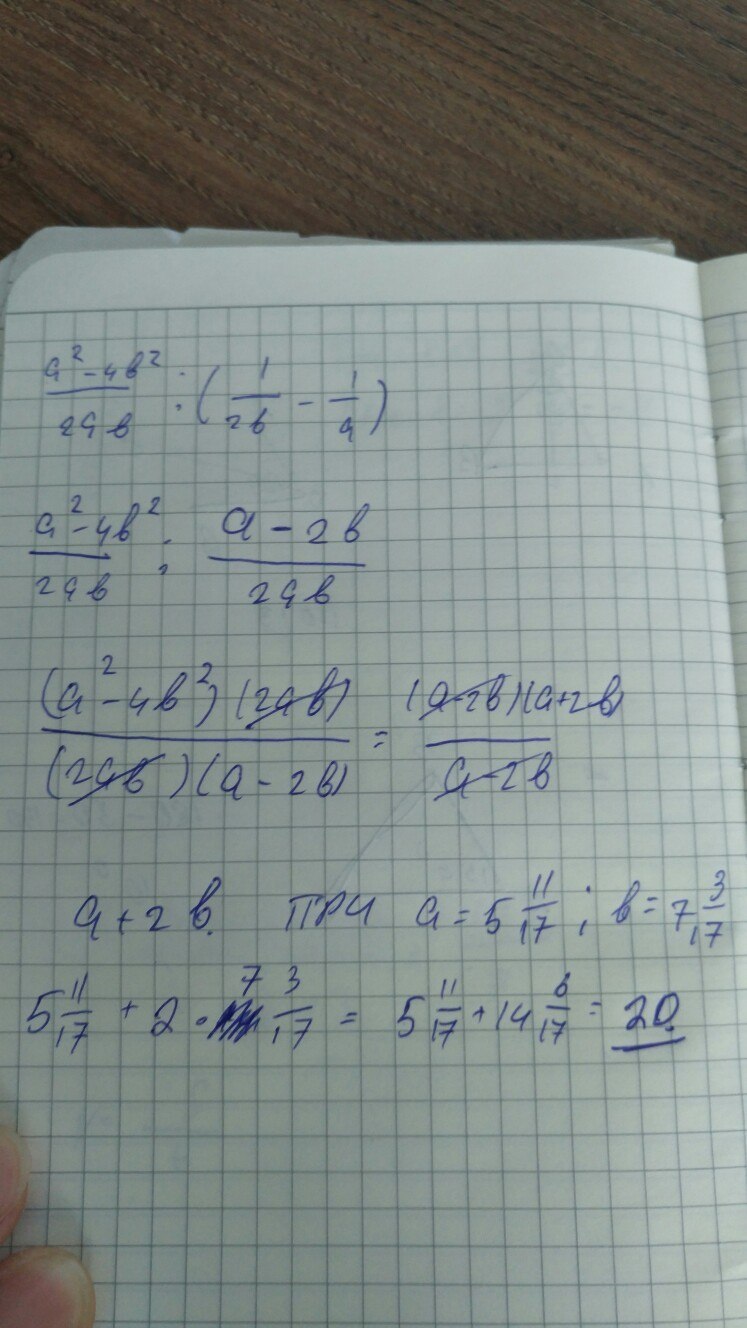 (a² - 4в²)/(2ав) : (1/(2в) - 1/а)
(a² - 4в²)/(2ав) : (а - 2в)/(2ав)
((a² - 4в²)(2ав))/((2ав)(а - 2в)) = ((а-2в)(а+2в))/(а-2в)
а + 2в. ПРИ а = 5 11/17 ; в = 7 3/17
5 11/17 + 2 · 7 3/17 = 5 11/17 + 14 6/17 = 20.